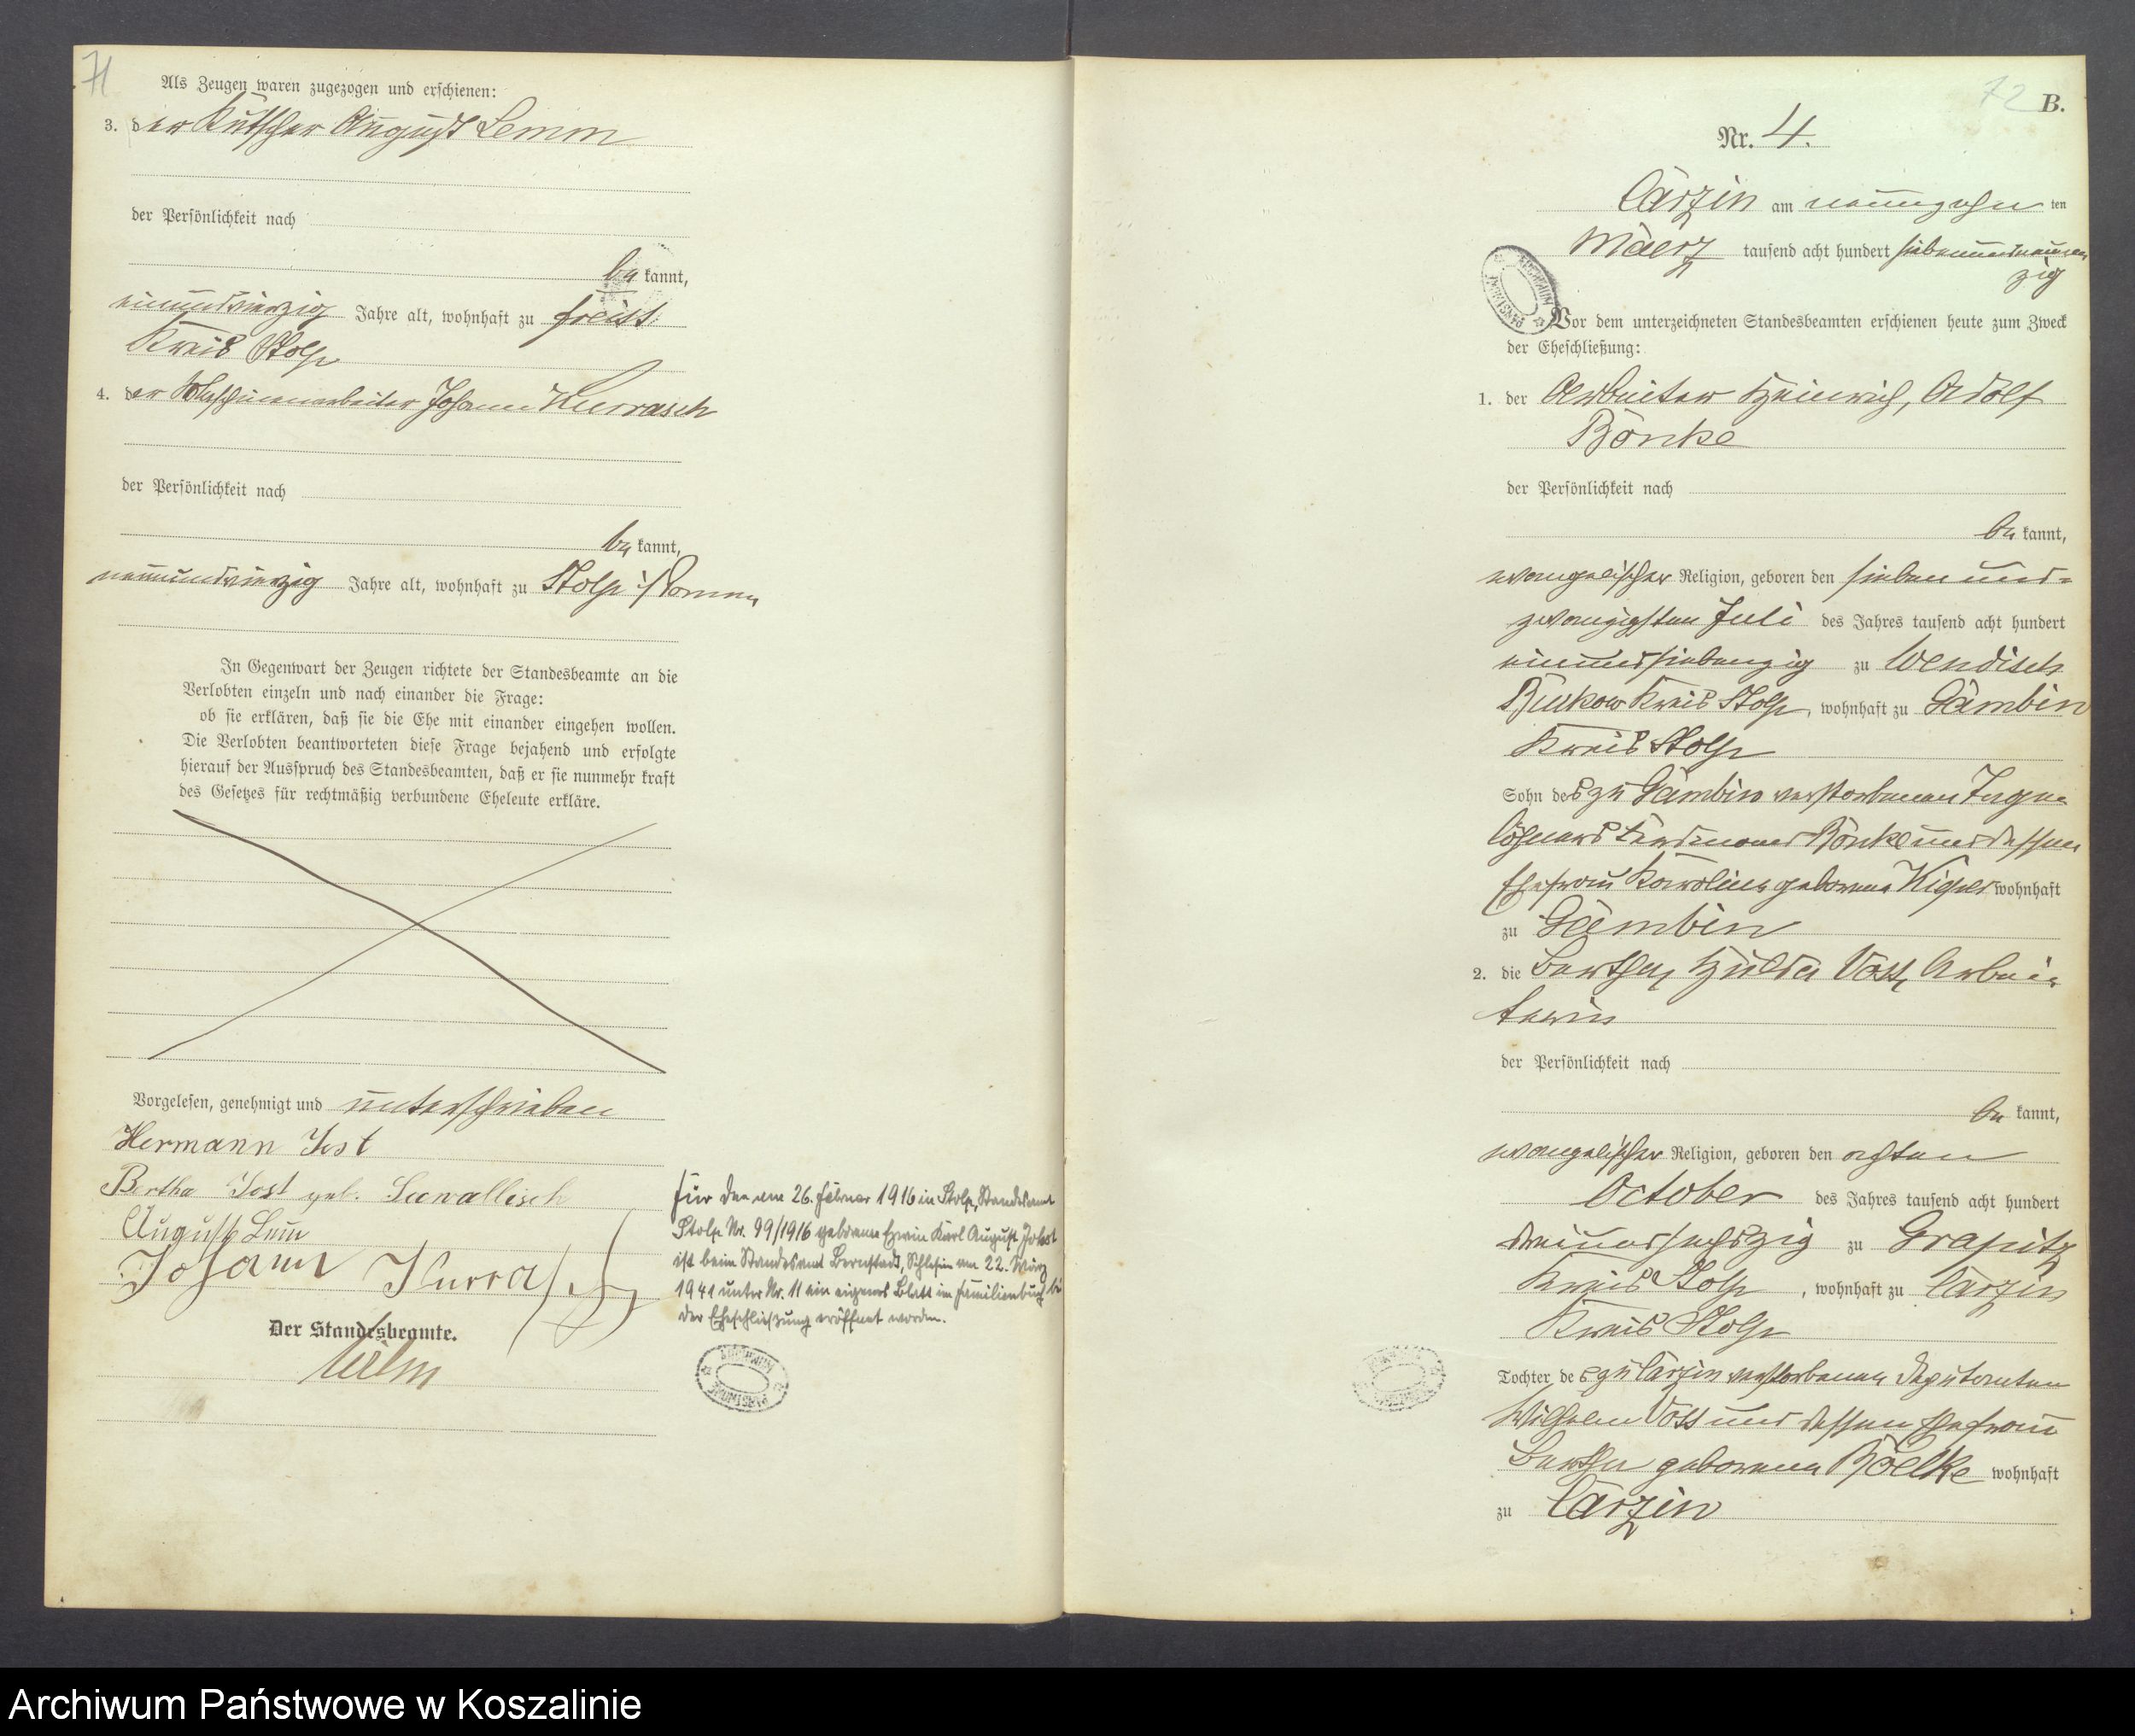 71
Als Zeugen waren zugezogen und erschienen:
3. der Kutscher August Lemm
der Persönlichkeit nach
be kannt,
einundvierzig Jahre alt, wohnhaft zu Freist
Kreis Stolp
4. der Johann Kurrasch
der Persönlichkeit nach
be kannt,
neunundvierzig Jahre alt, wohnhaft zu Stolp i/Pomm
In Gegenwart der Zeugen richtete der Standesbeamte an die
Verlobten einzeln und nach einander die Frage:
ob sie erklären, daß sie die Ehe mit einander eingehen wollen.
Die Verlobten beantworteten diese Frage bejahend und erfolgte
hierauf der Ausspruch des Standesbeamten, daß er sie nunmehr kraft
des Gesetzes für rechtmäßig verbundene Eheleute erkläre.
Vorgelesen, genehmigt und unterschrieben
Hermann Jost
Bertha Jost geb.
August Lemm
Johann Kurrasch
Der Standesbeamte.
Für den am 26. Februar 1916 in Stolp, Standesamt
Stolp Nr. 99/1916 geborenen Erwin Karl August Jobst
ist beim Standesamt Bernstadt, Schlesien am 22. März
1941 unter Nr. 11 ein eigenes Blatt im Familienbuch bei
der Eheschließung eröffnet worden.
72 B.
Nr. 4.
Carzin am neunzehn ten
Maerz tausend acht hundert siebenundneun
zig
Vor dem unterzeichneten Standesbeamten erschienen heute zum Zweck
der Eheschließung:
1. der Arbeiter Heinrich, Adolf
Bönke
der Persönlichkeit nach
be kannt,
evangelischer Religion, geboren den sieben und-
zwanzigsten Juli des Jahres tausend acht hundert
einundsiebenzig zu Wendisch
Buckow Kreis Stolp, wohnhaft zu Gambin
Kreis Stolp
Sohn des zu Gambin verstorbenen Tage-
löhners Ferdinand Bönke und dessen
Ehefrau Karoline geborene wohnhaft
zu Gambin
2. die Bertha, Hulda Voss, Arbei-
terin
der Persönlichkeit nach
be kannt,
evangelischer Religion, geboren den achten
October des Jahres tausend acht hundert
dreiundsechszig zu Grapitz
Kreis Stolp, wohnhaft zu Carzin
Kreis Stolp
Tochter des zu Carzin verstorbenen Deputanten
Wilhelm Voss und dessen Ehefrau
Bertha geborenen Bölke wohnhaft
zu Carzin
Archiwum Państwowe w Koszalinie